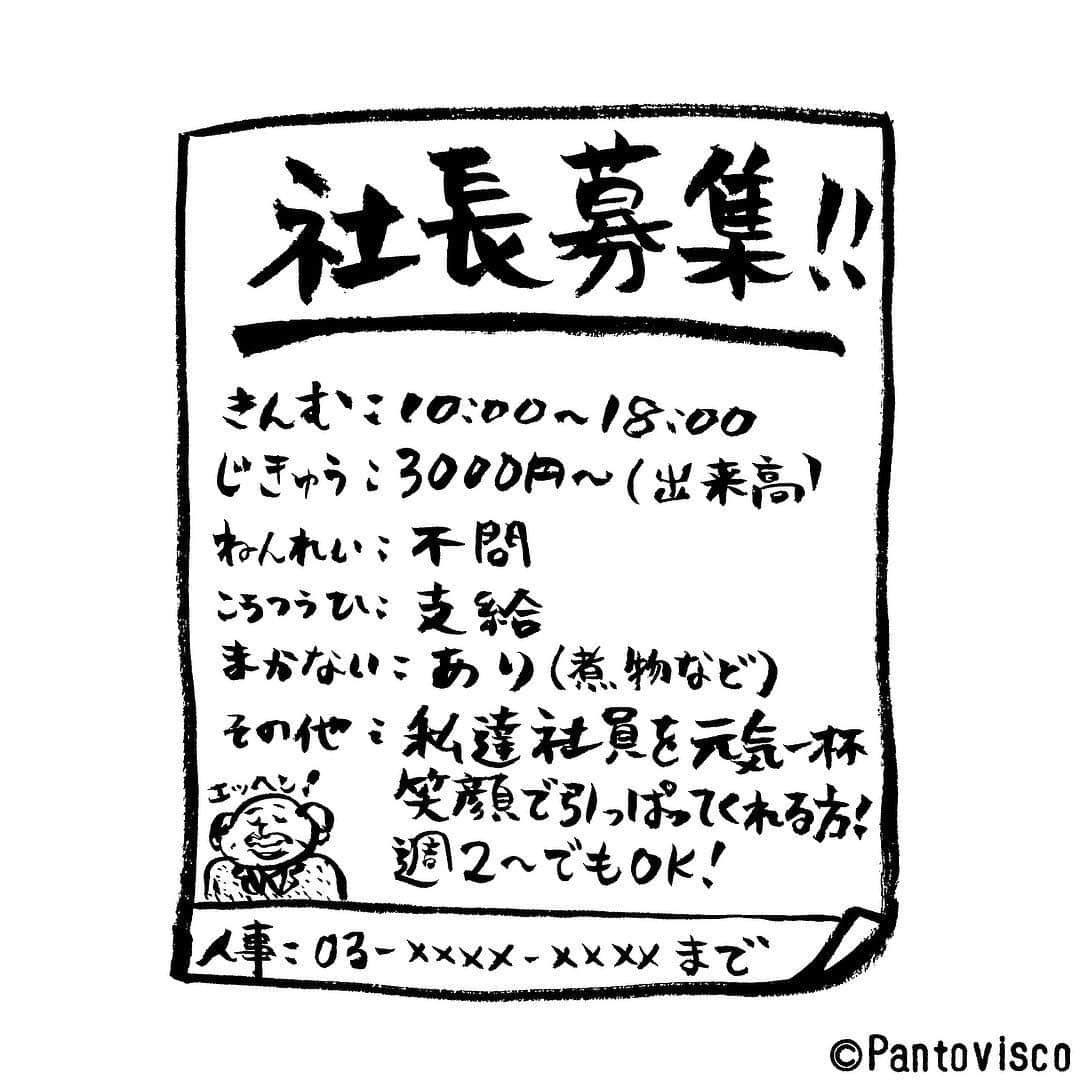 社長募集!!
きんむ：10:00～18:00
じきゅう：3000円～(出来高)
ねんれい：不問
こうつうひ：支給
まかない：あり(煮物など)
その他：私達社員を元気一杯
笑顔で引っぱってくれる方!
週2～でもOK!
エッヘン!
人事：03-xxxx-xxxxまで
©Pantovisco